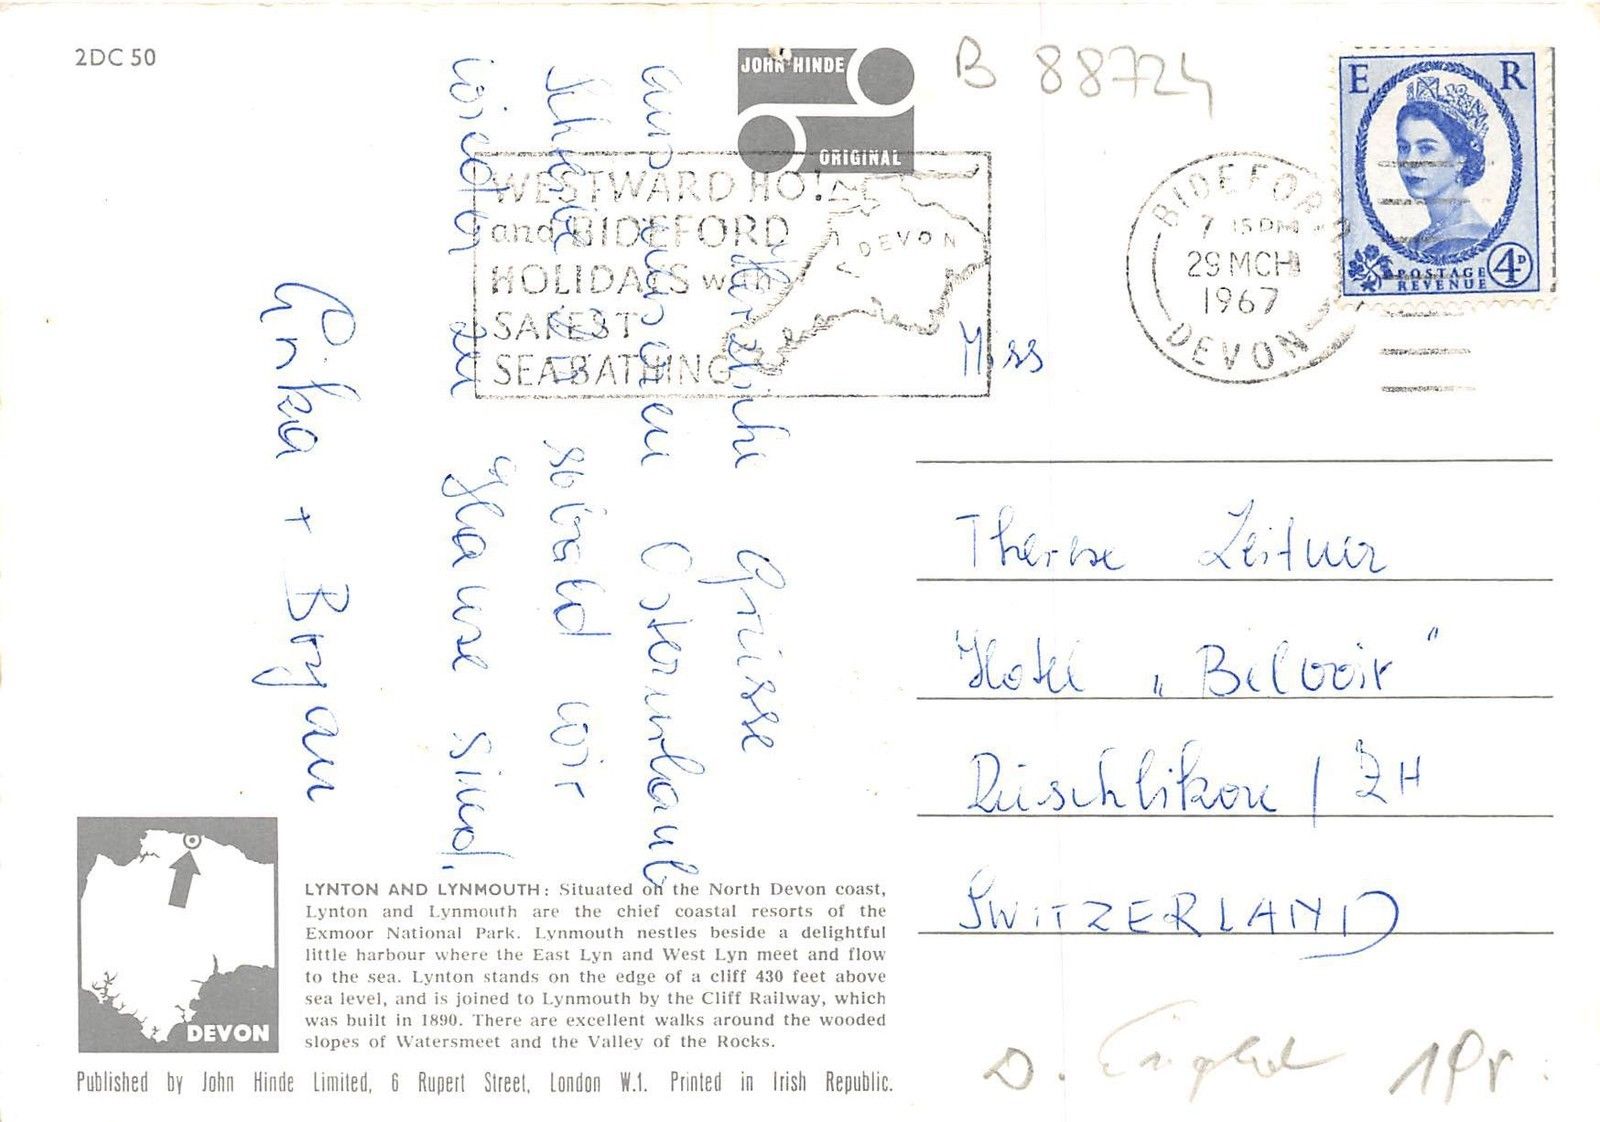 2DC 50
JOHN HINDE
ORIGINAL
B 88724
E R
POSTAGE
REVENUE
4D
BIDEFORD
7 15 PM
29 MCH
1967
DEVON
WESTWARD HO!
and BIDEFORD
HOLIDAYS with
SAFEST
SEA BATHING
DEVON
Herzliche Grüsse
aus unserem Osterurlaub
Schreibe Dir sobald wir
wieder zu Hause sind.
Erika +
Miss
Therese Leitner
Hotel „Belvoir“
Rüschlikon / ZH
SWITZERLAND
DEVON
LYNTON AND LYNMOUTH: Situated on the North Devon coast,
Lynton and Lynmouth are the chief coastal resorts of the
Exmoor National Park. Lynmouth nestles beside a delightful
little harbour where the East Lyn and West Lyn meet and flow
to the sea. Lynton stands on the edge of a cliff 430 feet above
sea level, and is joined to Lynmouth by the Cliff Railway, which
was built in 1890. There are excellent walks around the wooded
slopes of Watersmeet and the Valley of the Rocks.
Published by John Hinde Limited, 6 Rupert Street, London W.1. Printed in Irish Republic.